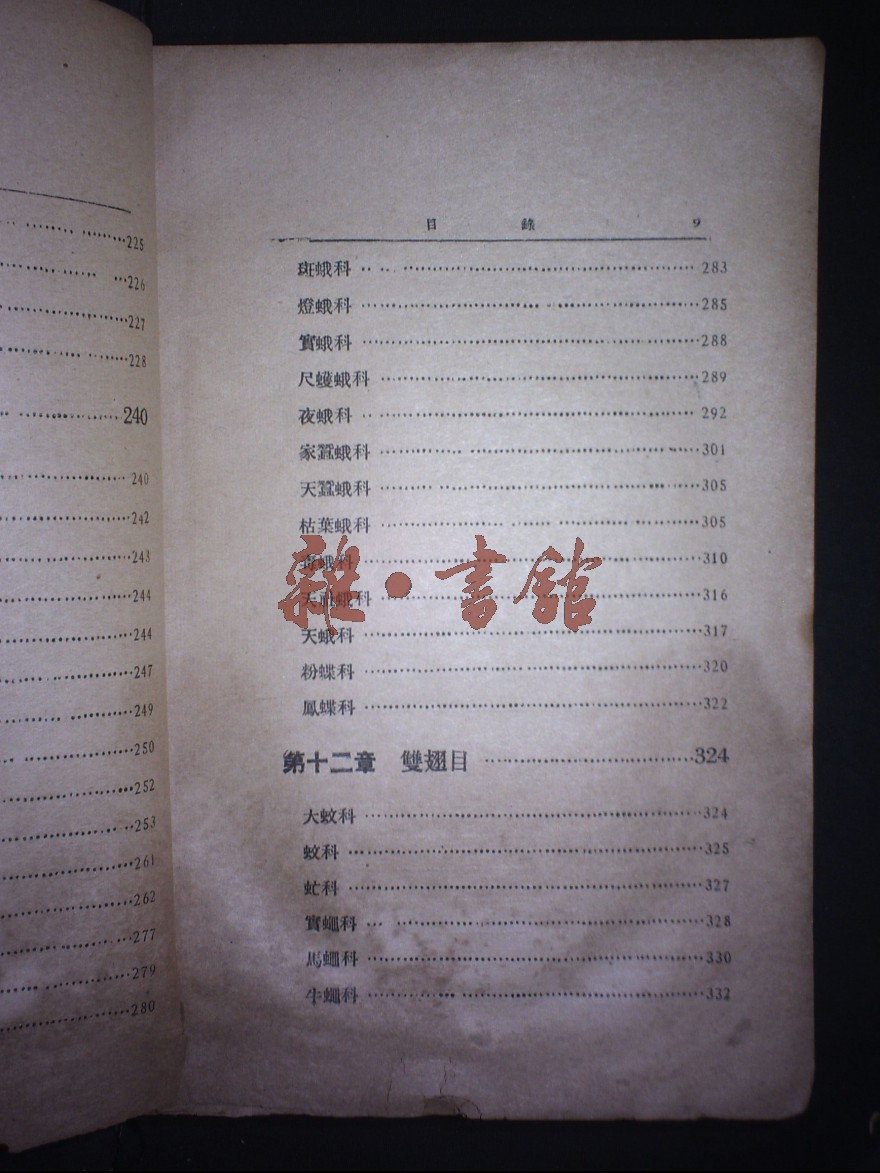 225
226
227
228
240
240
242
243
244
244
247
249
250
252
253
261
262
277
279
280
目 錄 9
斑蛾科 283
燈蛾科 285
實蛾科 288
尺蠖蛾科 289
夜蛾科 292
家蠶蛾科 301
天蠶蛾科 305
枯葉蛾科 305
蛾科 310
天社蛾科 316
天蛾科 317
粉蝶科 320
鳳蝶科 322
第十二章 雙翅目 324
大蚊科 324
蚊科 325
虻科 327
實蠅科 328
馬蠅科 330
牛蠅科 332
雜·書館